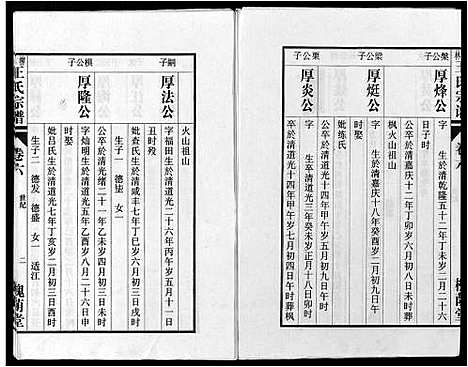 槃公子
厚烽公
字 生於清乾隆五十二年二月二十六
日子時
公卒於清嘉庆十二年丁卯岁六月初九日葬
枫火山祖山
梁公子
厚烶公
字 生於清嘉庆十八年癸酉岁五月初九日午
时
妣练氏
栗公子
厚炎公
字 生卒於清道光三年癸未岁正月十八日戌时
公卒於清道光十四年甲午岁七月初四日午时葬枫
火山祖山
嗣子
厚法公
字福田生於清道光二十六年丙午岁五月十一日
丑时殁
妣查氏生於清咸丰七年丁巳岁六月初三日戌时
生子一 德法 女一
棋公子
厚隆公
字灿明生於清道光五年乙酉岁八月二十六日申
时娶
公卒於清光绪二十一年
妣吕氏生於清道光七年丁亥岁二月初二日酉时
生子二 德发 德盛 女一 适江
王氏宗谱
卷六
世纪
二
槐荫堂